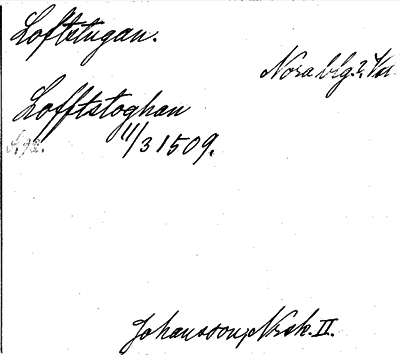 Loftstugan.
Nora brg. i Vm.
Lofftstoghan
11/3 1509.
S. 92.
Johansson, Nrsk. II.